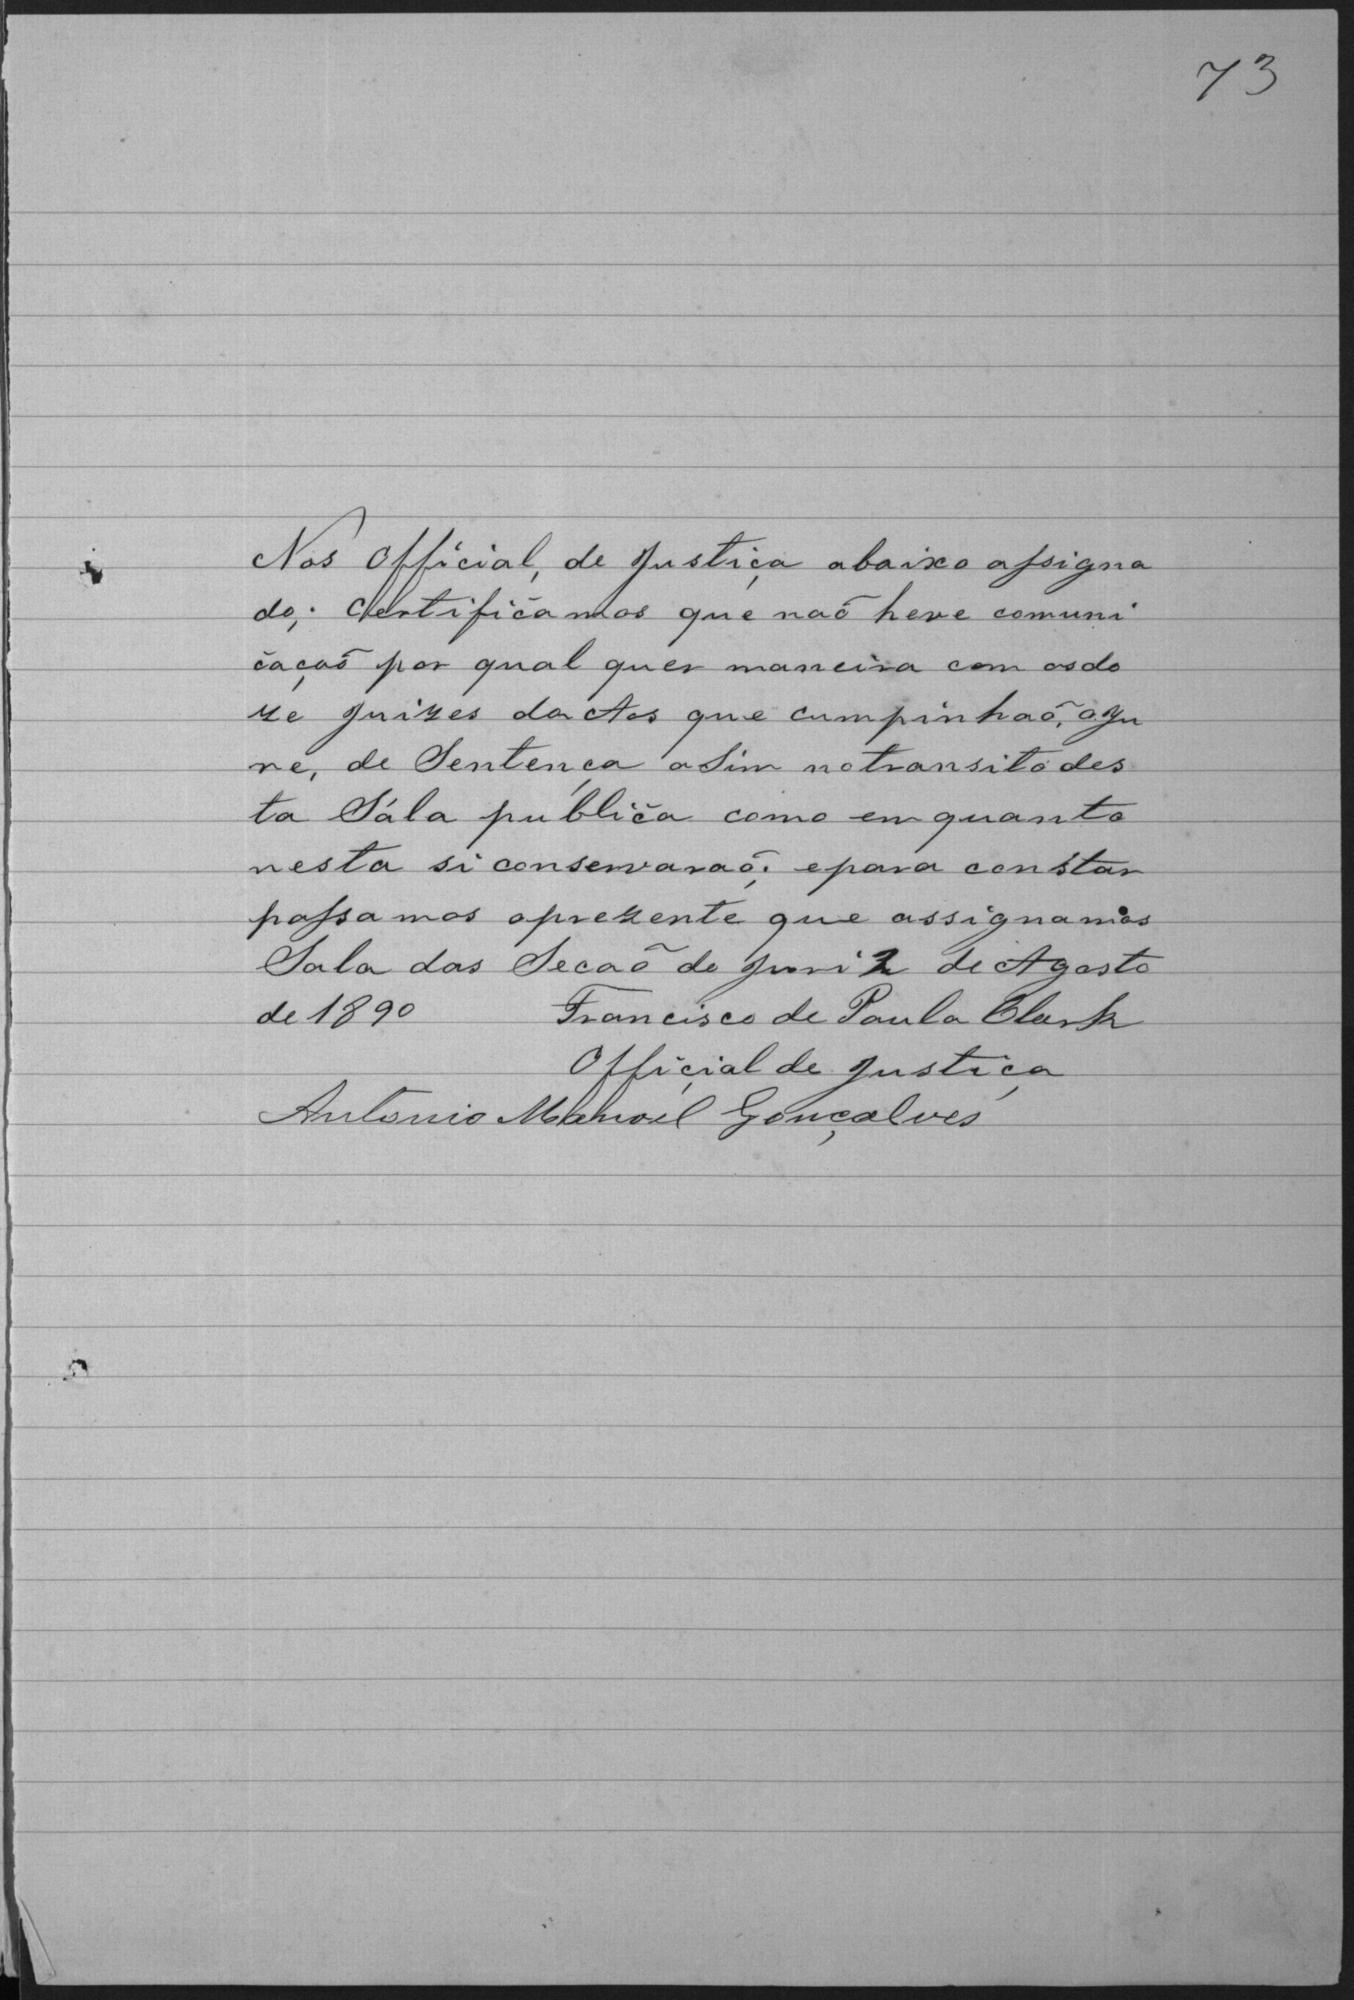 73
Nos Official, de Justiça abaixo assigna
do; Certificamos que naõ heve comuni
caçaõ por qual quer maneira com os do
ze Juizes da Aos que cumpinhaõ, o Ju
re, de Sentença a Sim no transito des
ta Sála publica como em quanto
nesta si conservaraõ; e para constar
passamos o prezente que assignamos
Sala das Secaõ do Juri 2 de Agosto
de 1890 Francisco de Paula Clark
Official de Justiça
Antonio Manoel Gonçalves